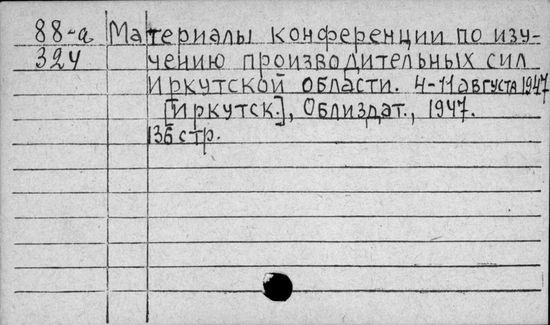 88-а Материалы конференции по изу-
324 чению производительных сил
Иркутской области. 4-11 августа 1947
[Иркутск.], Облиздат., 1947.
136 стр.